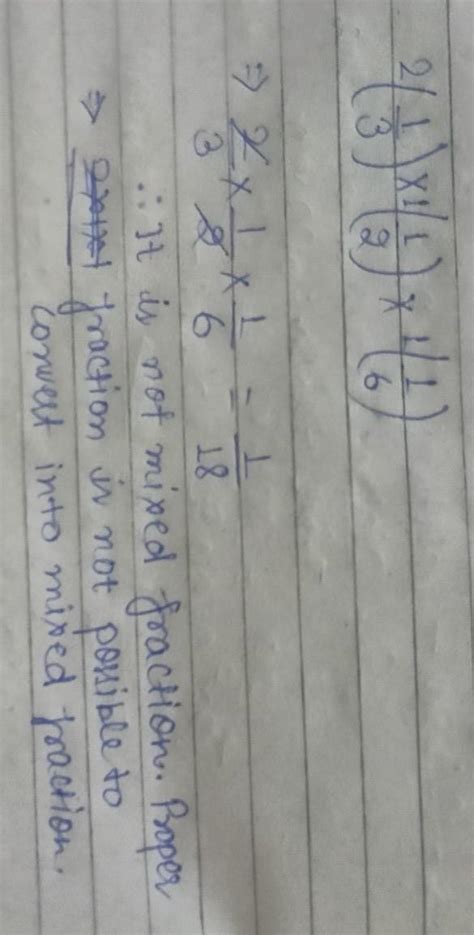 2(1/3) × 1(1/2) × 1(1/6)
⇒ 2/3 × 1/2 × 1/6 = 1/18
∴ It is not mixed fraction. Proper
⇒ fraction is not possible to
convert into mixed fraction.